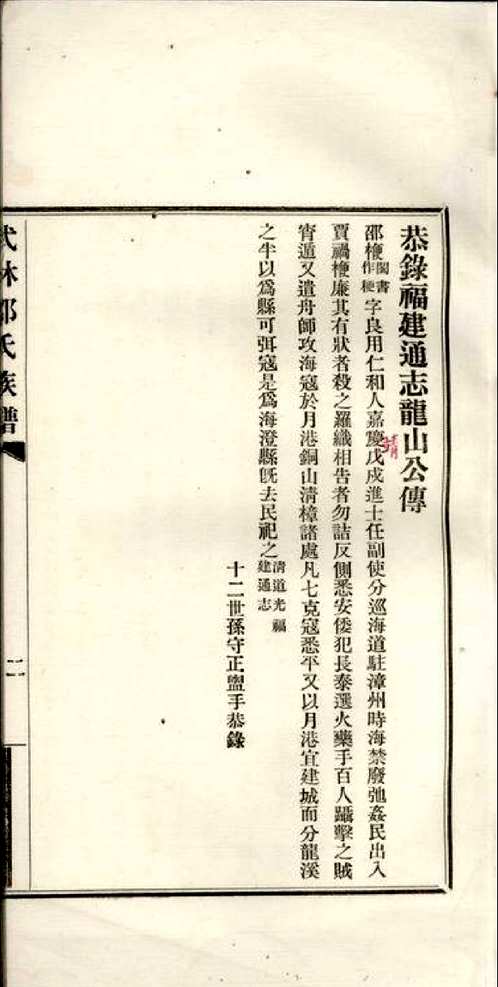 恭錄福建通志龍山公傳
邵楩閩書作梗字良用仁和人嘉慶戊戌進士任副使分巡海道駐漳州時海禁廢弛姦民出入
靖
賈禍楩廉其有狀者殺之羅織相告者勿詰反側悉安倭犯長泰選火藥手百人躡擊之賊
宵遁又遣舟師攻海寇於月港銅山清樟諸處凡七克寇悉平又以月港宜建城而分龍溪
之半以爲縣可弭寇是爲海澄縣旣去民祀之清道光福建通志
十二世孫守正盥手恭錄
武林邵氏族譜
二